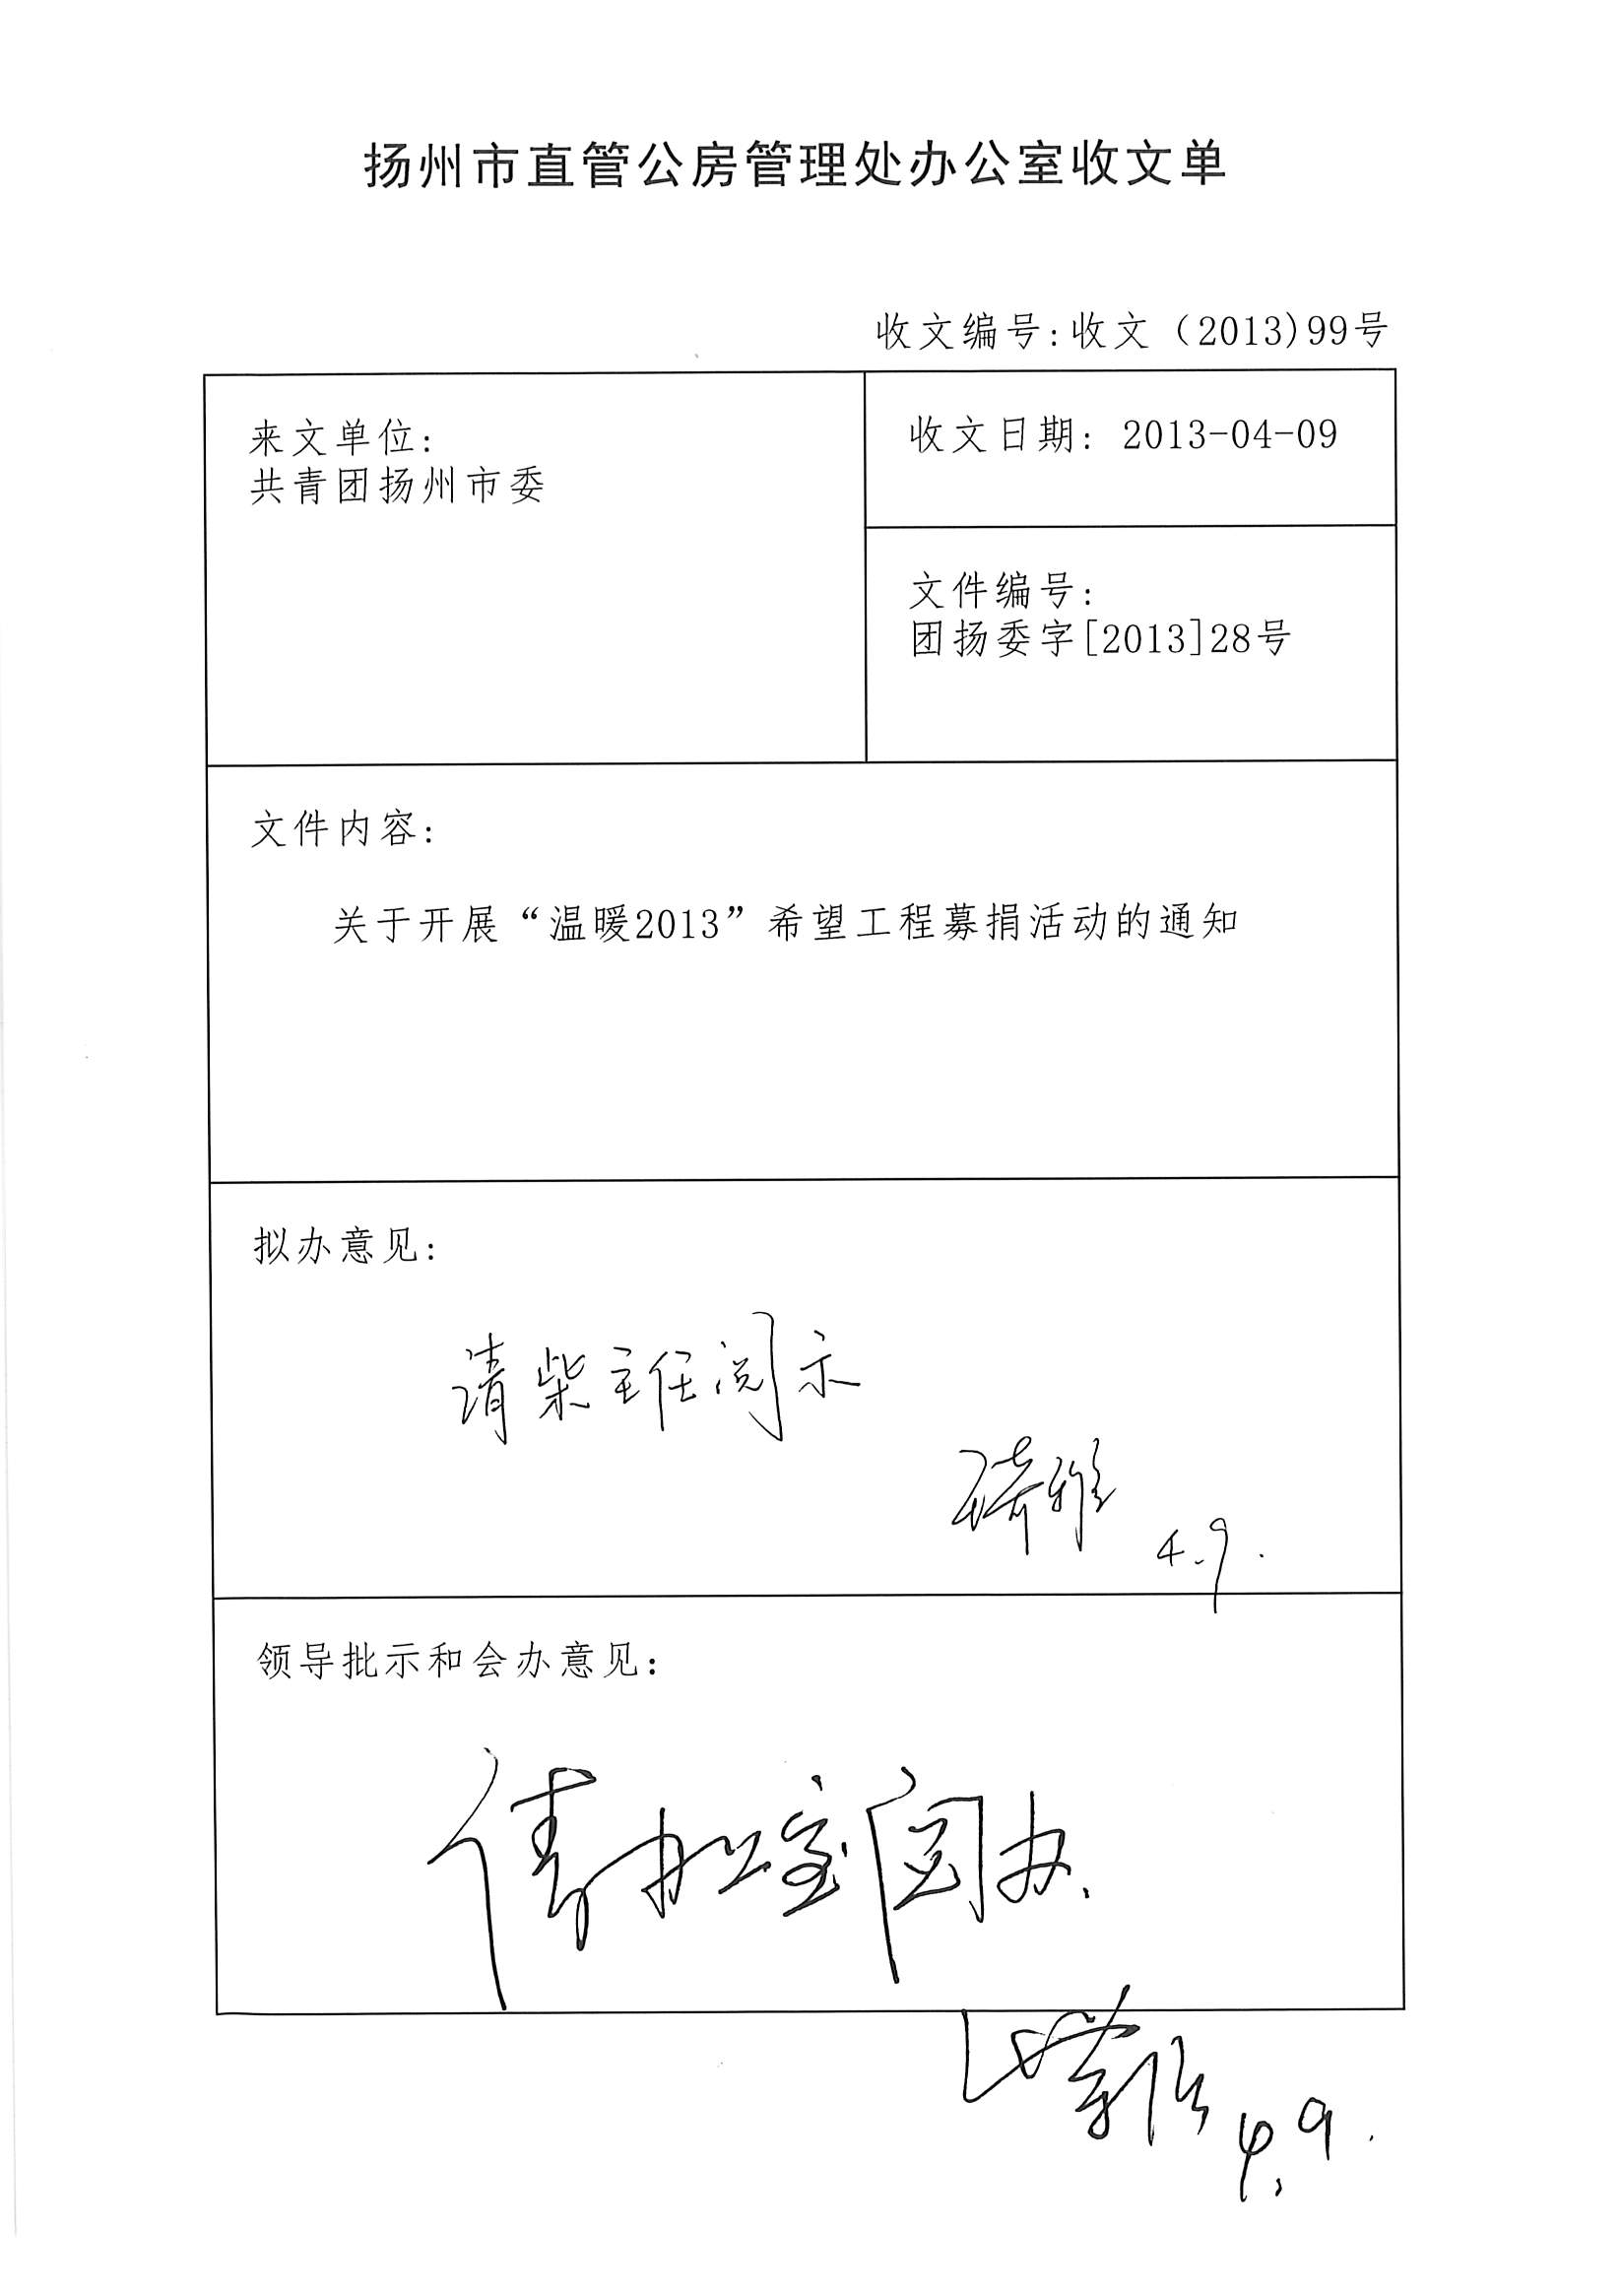 扬州市直管公房管理处办公室收文单
收文编号:收文（2013)99号
来文单位:
共青团扬州市委
收文日期: 2013-04-09
文件编号:
团扬委字[2013]28号
文件内容:
关于开展“温暖2013”希望工程募捐活动的通知
拟办意见:
请柴主任阅示
4.9.
领导批示和会办意见:
请办公室阅办.
4.9.